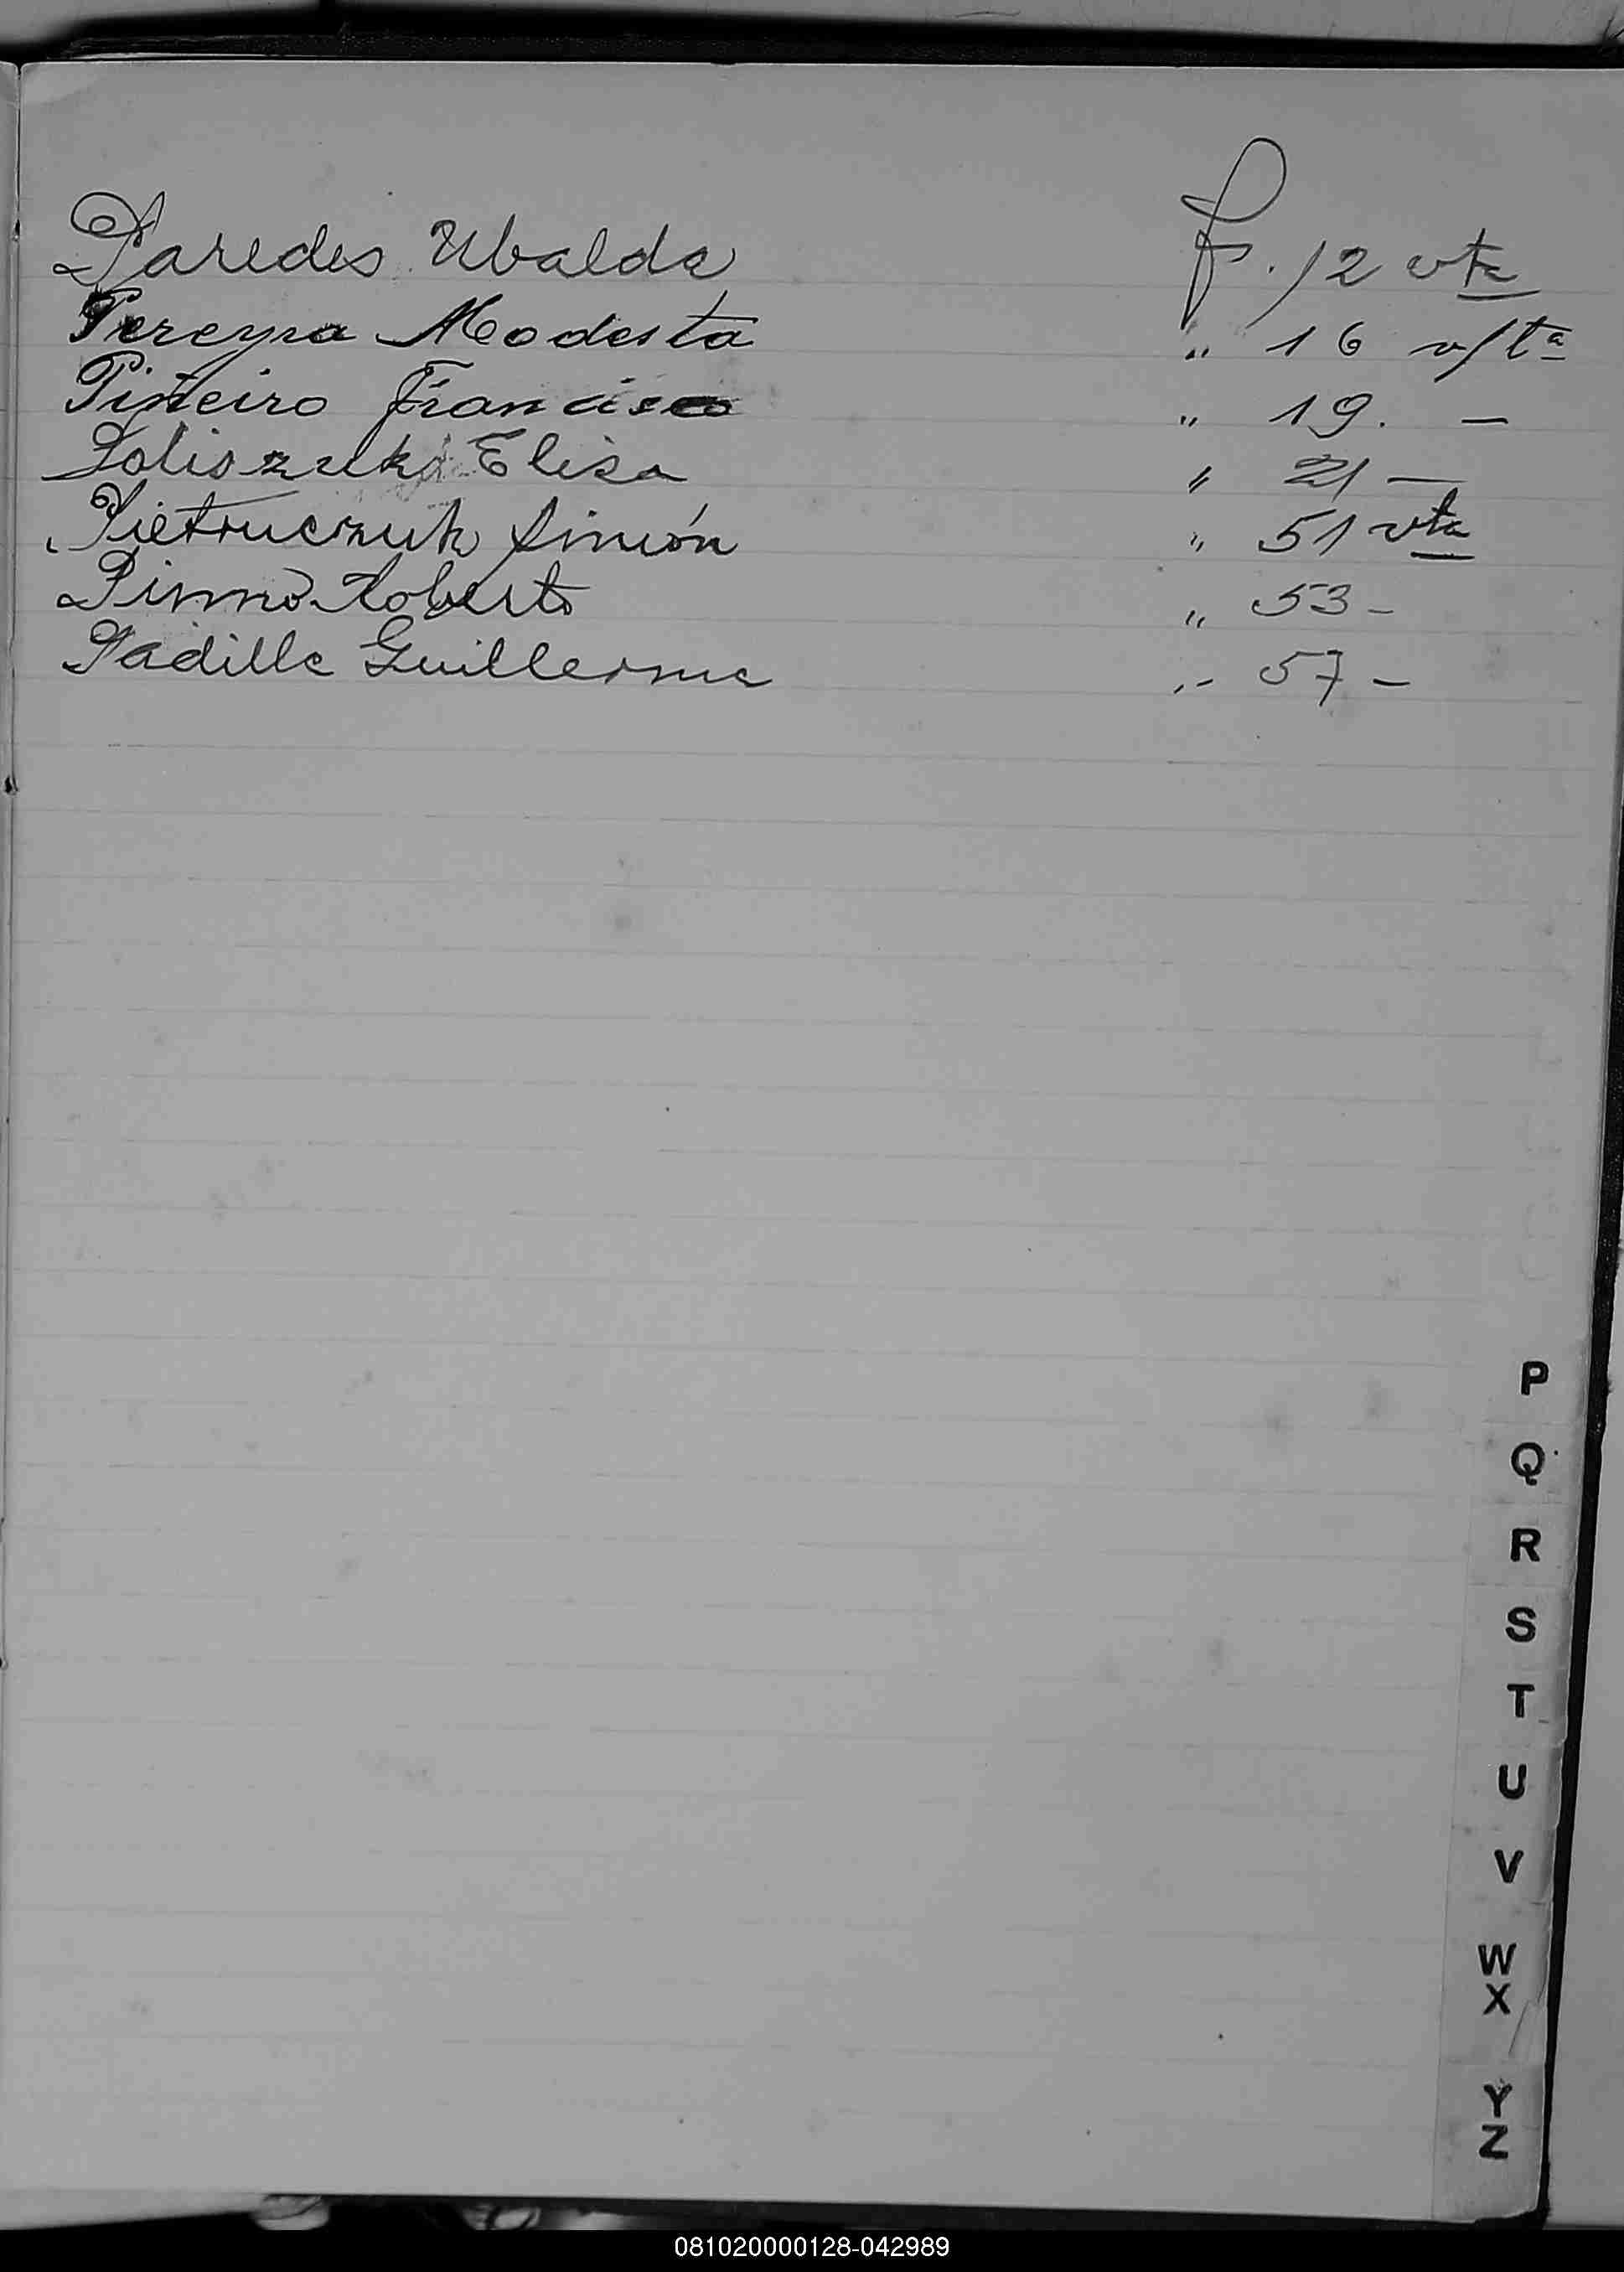 Paredes Ubalda f. 12 vta
Pereyra Modesta " 16 v/ta
Piñeiro Francisco " 19. —
Poliszuk Elisa " 21 —
Pietruczuk Simón " 51 vta
Roberto " 53 -
Padilla Guillerma " 57 -
P
Q
R
S
T
U
V
W
X
Y
Z
081020000128-042989